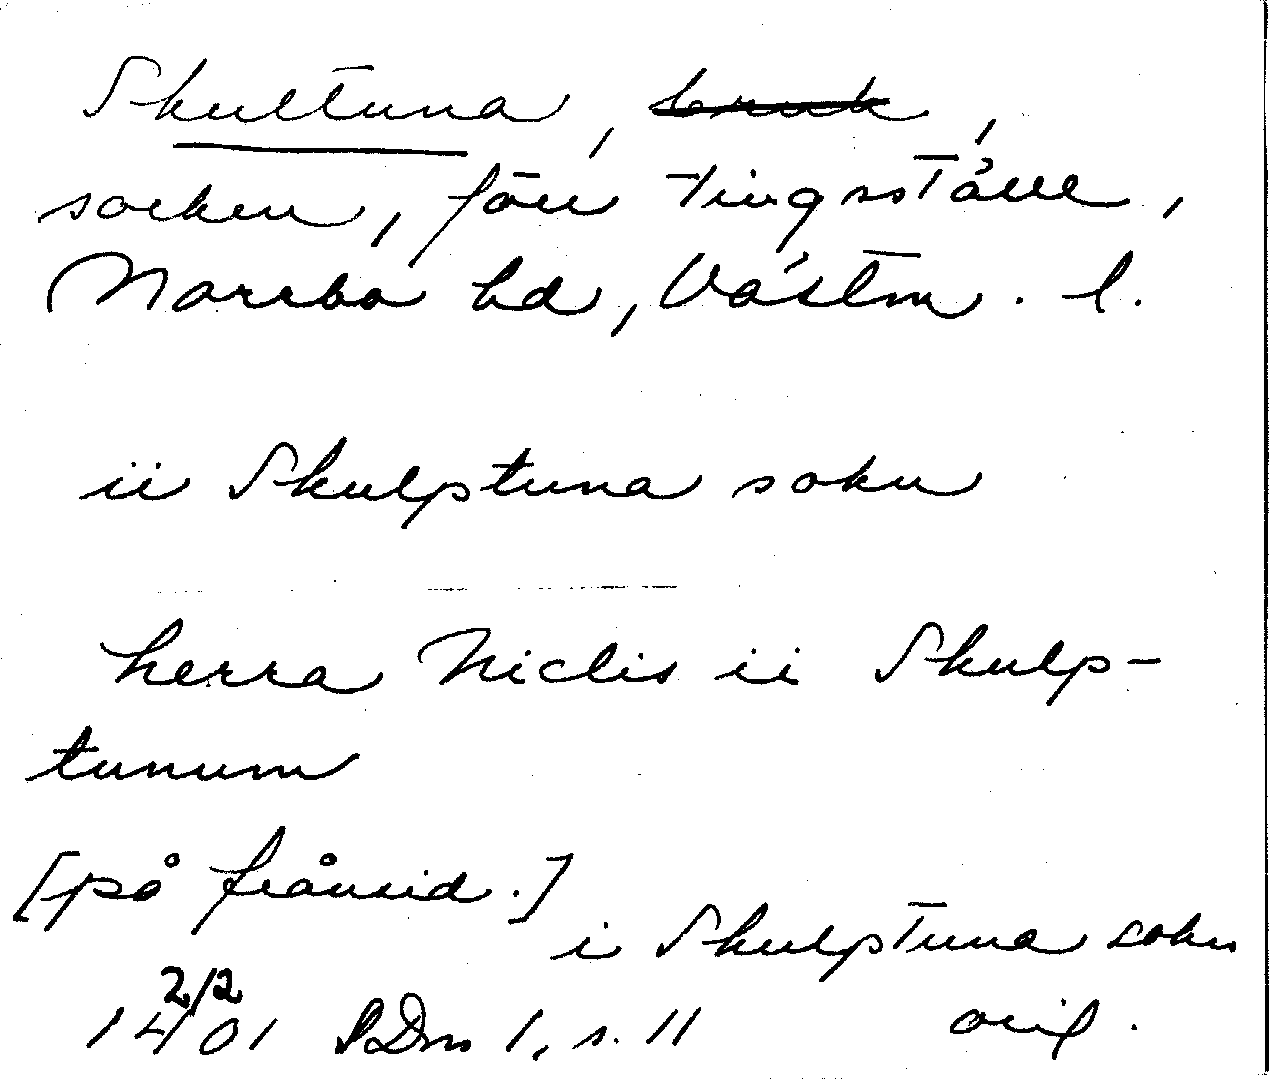 Skultuna, bruk,
socken, förr tingställe,
Norrbo hd, Västm. l.
ii Skulptuna sokn
herra Niclis ii Skulp-
tunum
[på frånsid.]
i Skulptuna sokn
2/2
1401 SDns 1, s. 11 orig.